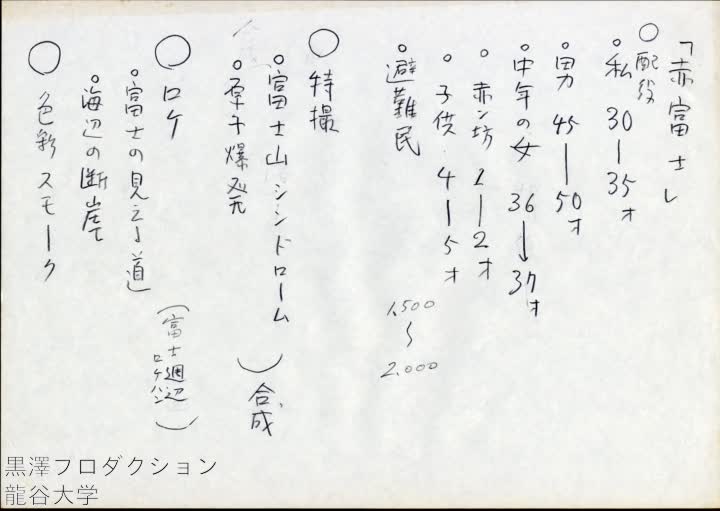 「赤富士」
○配役
○私 30|35才
○男 45|50才
○中年の女 36→37才
○赤ン坊 1|2才
○子供 4|5才
○避難民 1,500〜2,000
○特撮
○富士山シンドローム
○原子爆発
)合成
○ロケ
○富士の見える道
(富士週辺ロケハン)
○海辺の断崖
○色彩スモーク
黒澤プロダクション
龍谷大学